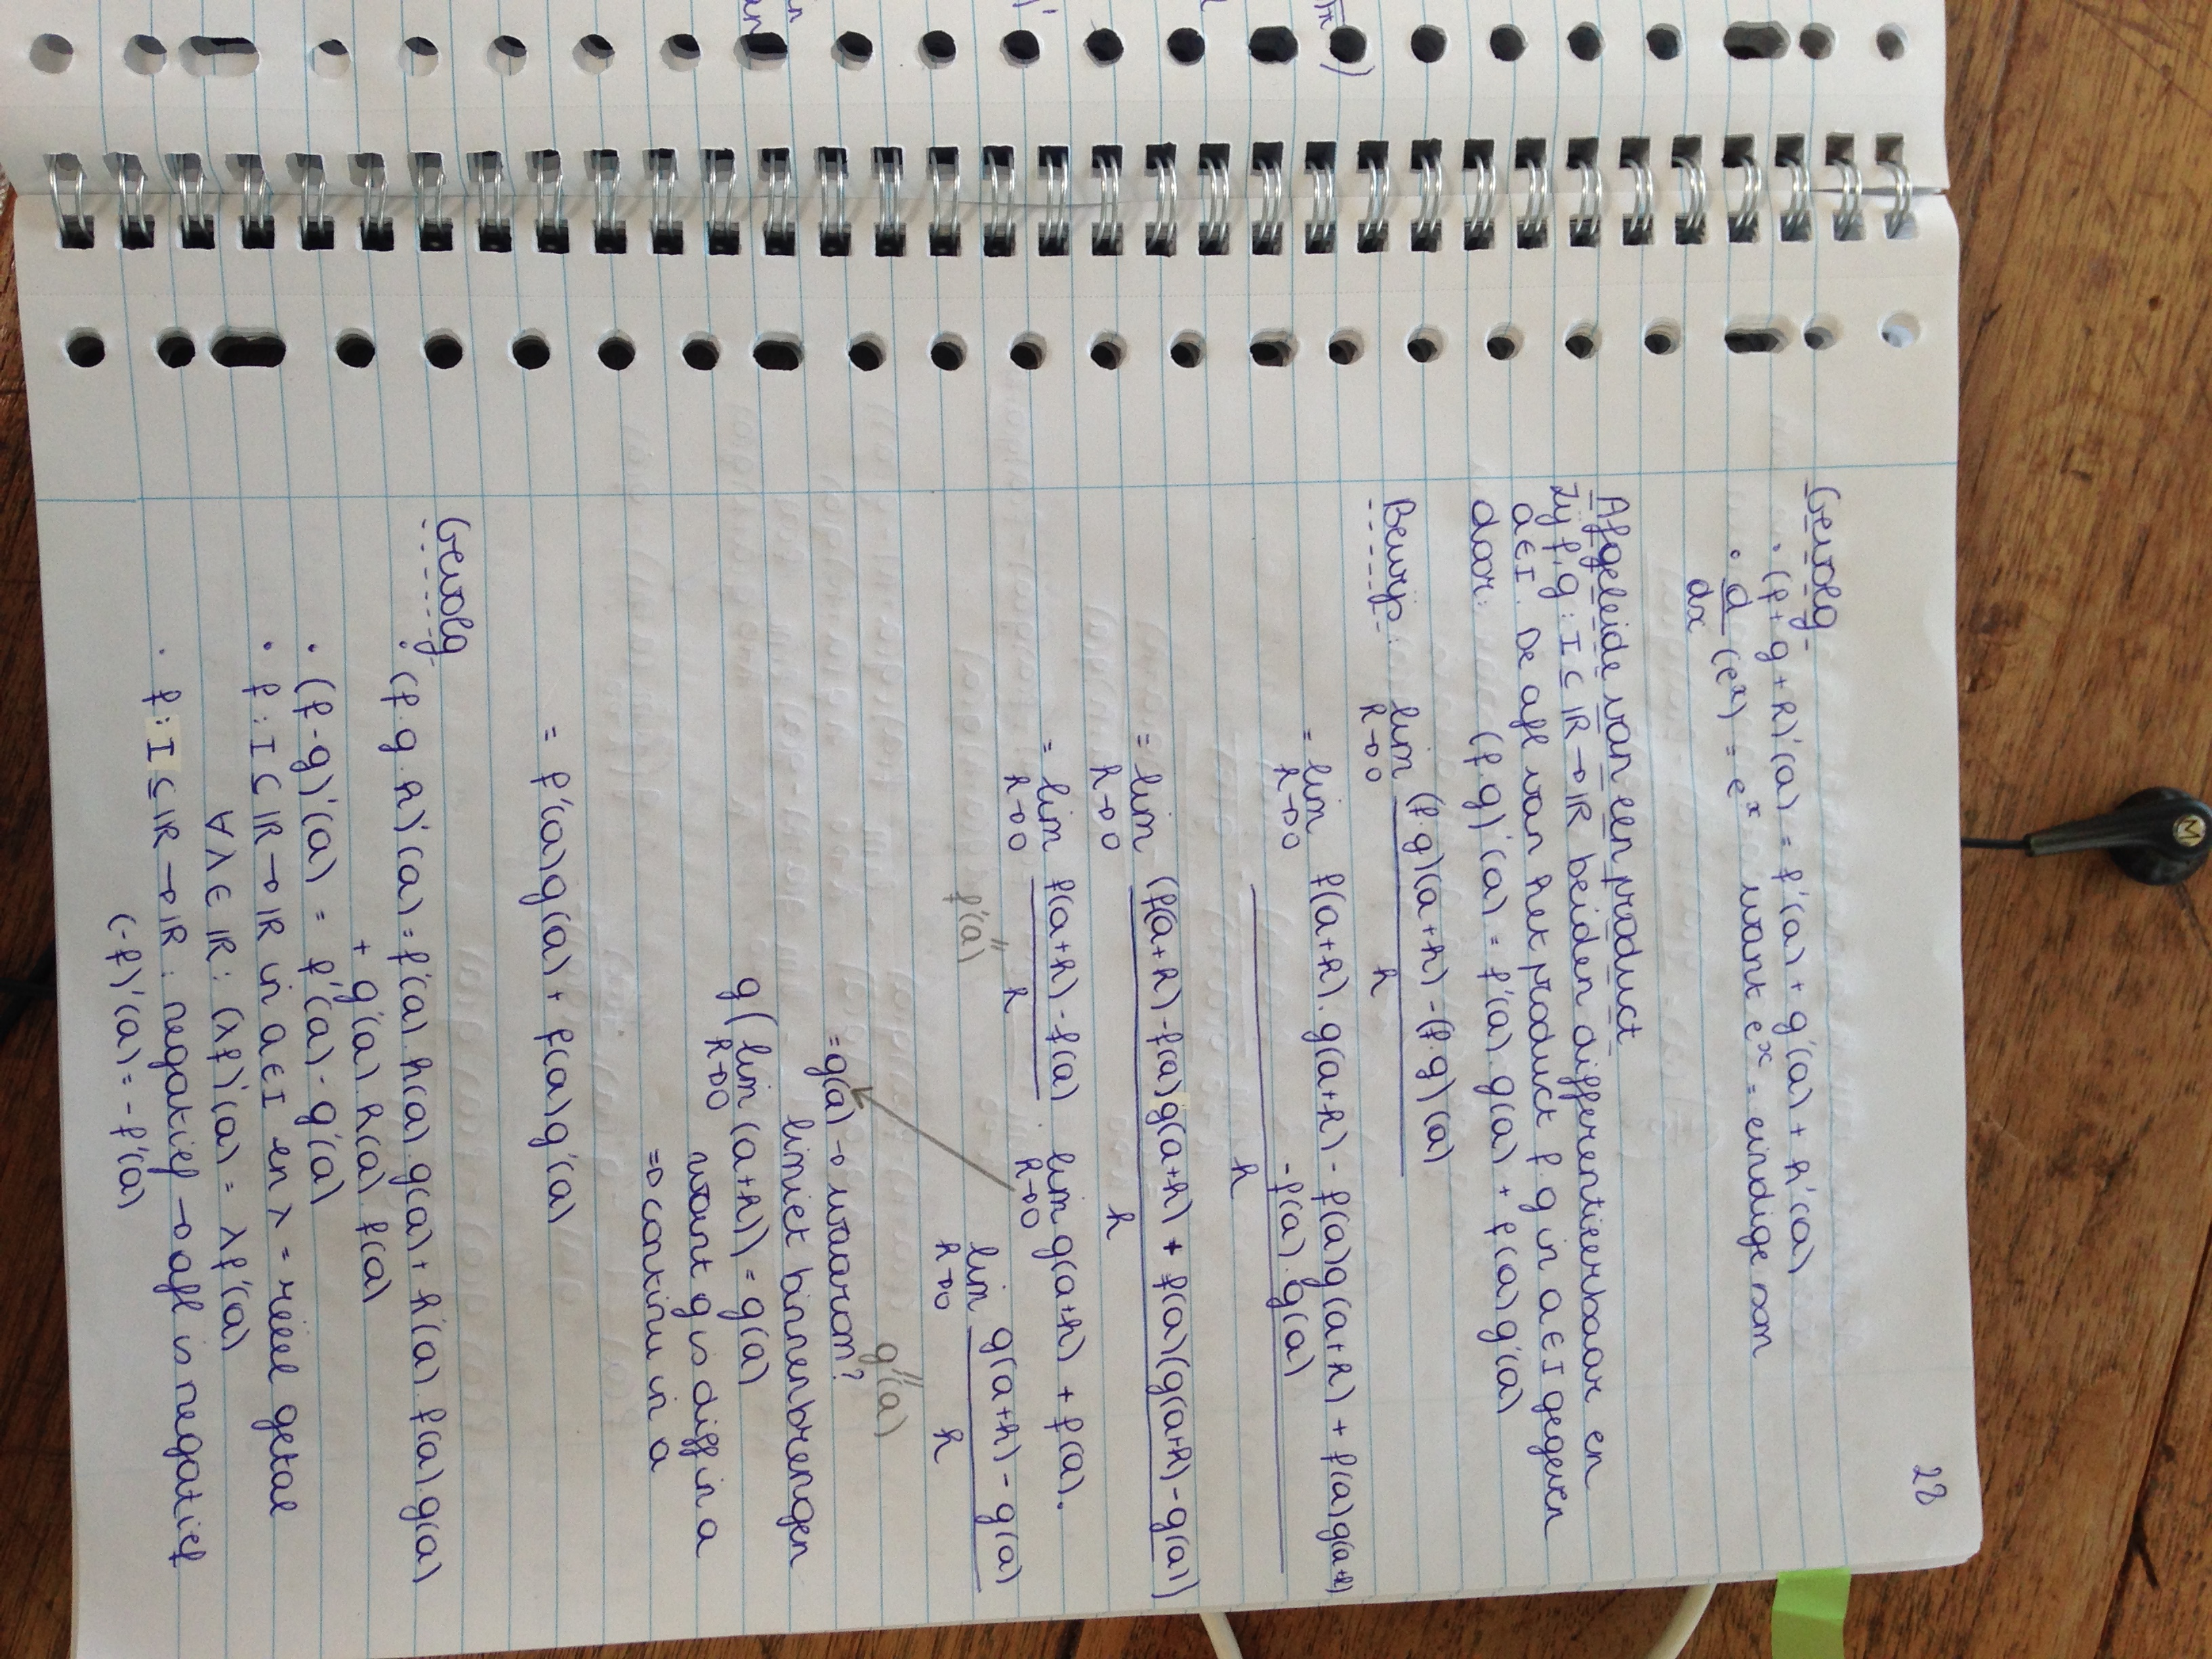 M
28
Gevolg
• (f+g+h)'(a) = f'(a) + g'(a) + h'(a)
• d/dx (e^x) = e^x want e^x = eindige som
Afgeleide van een product
Zij f, g : I ⊆ IR → IR beiden differentieerbaar en
a ∈ I. De afl van het product f.g in a ∈ I gegeven
door: (f.g)'(a) = f'(a).g(a) + f(a)g'(a)
Bewijs: lim h→0 ((f.g)(a+h) - (f.g)(a)) / h
= lim h→0 (f(a+h).g(a+h) - f(a)g(a+h) + f(a)g(a+h)
-f(a).g(a)) / h
= lim h→0 (f(a+h) - f(a)g(a+h) + f(a)(g(a+h) - g(a)) / h
= lim h→0 (f(a+h) - f(a)) / h . lim h→0 g(a+h) + f(a).
lim h→0 (g(a+h) - g(a)) / h
" f'(a)
" g'(a)
= g(a) → waarom?
limiet binnenbrengen
g(lim h→0 (a+h)) = g(a)
want g is diff in a
⇒ continu in a
= f'(a)g(a) + f(a)g'(a)
Gevolg
• (f.g.h)'(a) = f'(a).h(a).g(a) + h'(a).f(a).g(a)
+ g'(a).h(a).f(a)
• (f-g)'(a) = f'(a) - g'(a)
• f : I ⊆ IR → IR in a ∈ I en λ = reëel getal
∀λ ∈ IR : (λf)'(a) = λf'(a)
• f : I ⊆ IR → IR : negatief → afl is negatief
(-f)'(a) = -f'(a)